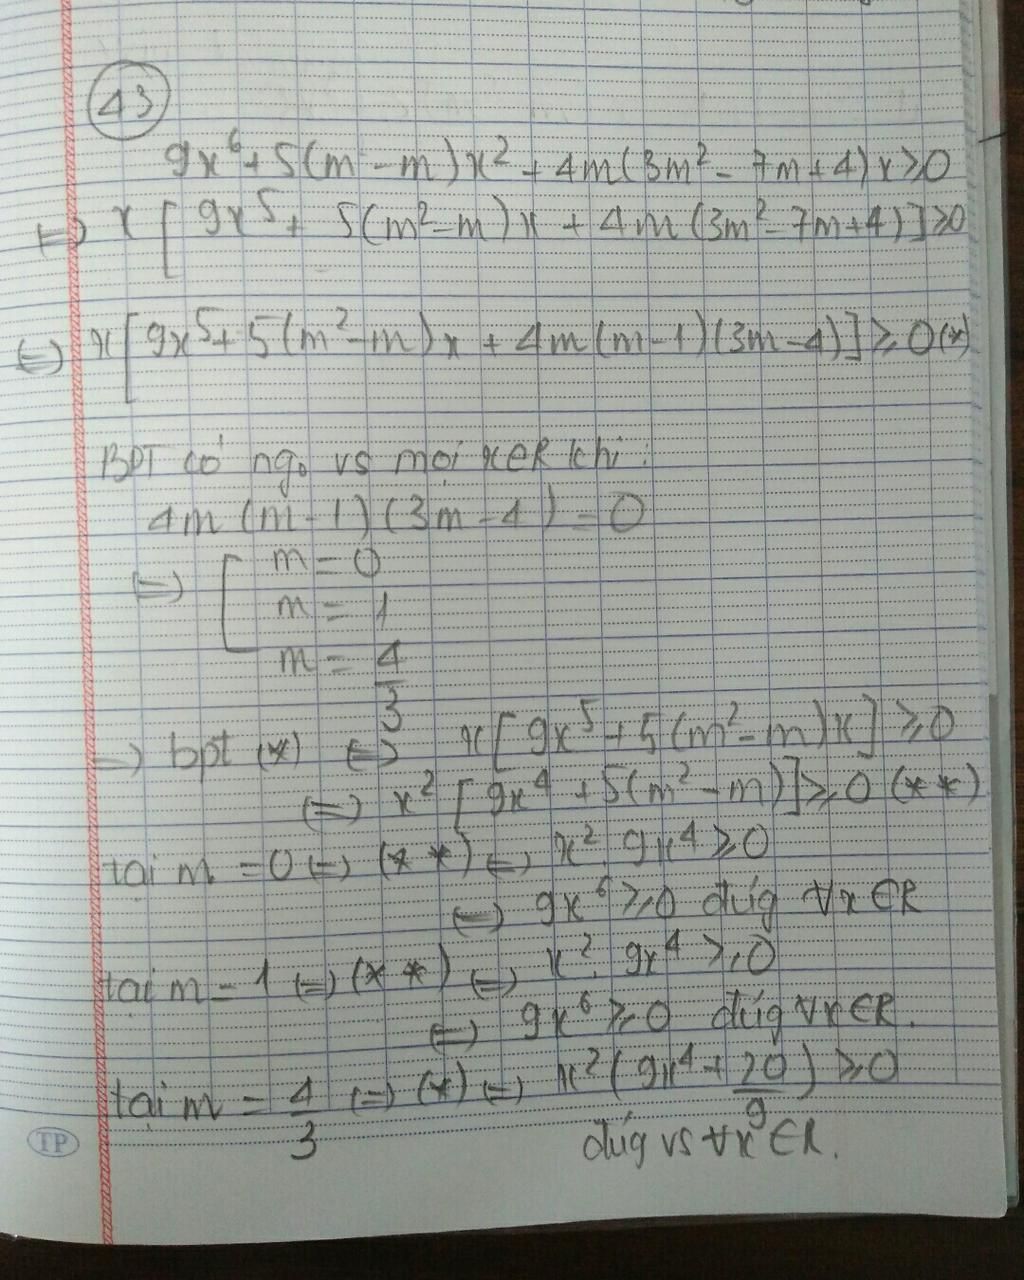 43
9x⁶ + 5(m - m)x² + 4m(3m² - 7m + 4)x ≥ 0
⇔ x[9x⁵ + 5(m² - m)x + 4m(3m² - 7m + 4)] ≥ 0
⇔ x[9x⁵ + 5(m² - m)x + 4m(m - 1)(3m - 4)] ≥ 0 (*)
BPT có ngo vs mọi x∈R khi :
4m(m - 1)(3m - 4) = 0
⇔ [ m = 0
m = 1
m = 4/3
⇒ bpt (*) ⇔ x[9x⁵ + 5(m² - m)x] ≥ 0
⇔ x²[9x⁴ + 5(m² - m)] ≥ 0 (**)
tại m = 0 ⇔ (**) ⇔ x². 9x⁴ ≥ 0
⇔ 9x⁶ ≥ 0 đúg ∀x ∈ R
tại m = 1 ⇔ (**) ⇔ x². 9x⁴ ≥ 0
⇔ 9x⁶ ≥ 0 đúg ∀x ∈ R.
tại m = 4/3 ⇔ (*) ⇔ x²(9x⁴ + 20/9) ≥ 0
đúg vs ∀x ∈ R.
TP